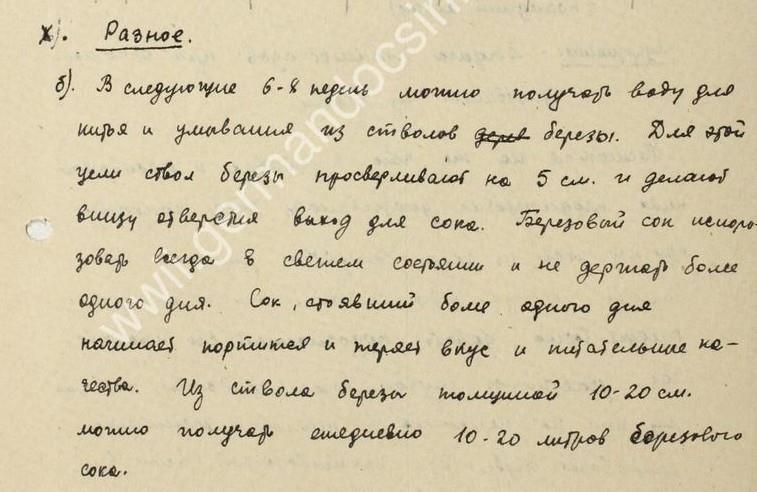 X). Разное.
б). В следующие 6-8 недель можно получать воду для
питья и умывания из стволов дерев березы. Для этой
цели ствол березы просверливают на 5 см. и делают
внизу отверстия выход для сока. Березовый сок исполь-
зовать всегда в свежем состоянии и не держать более
одного дня. Сок, стоявший более одного дня
начинает портится и теряет вкус и питательные ка-
чества. Из ствола березы толщиной 10-20 см.
можно получать ежедневно 10-20 литров березового
сока.
www.germandocsin